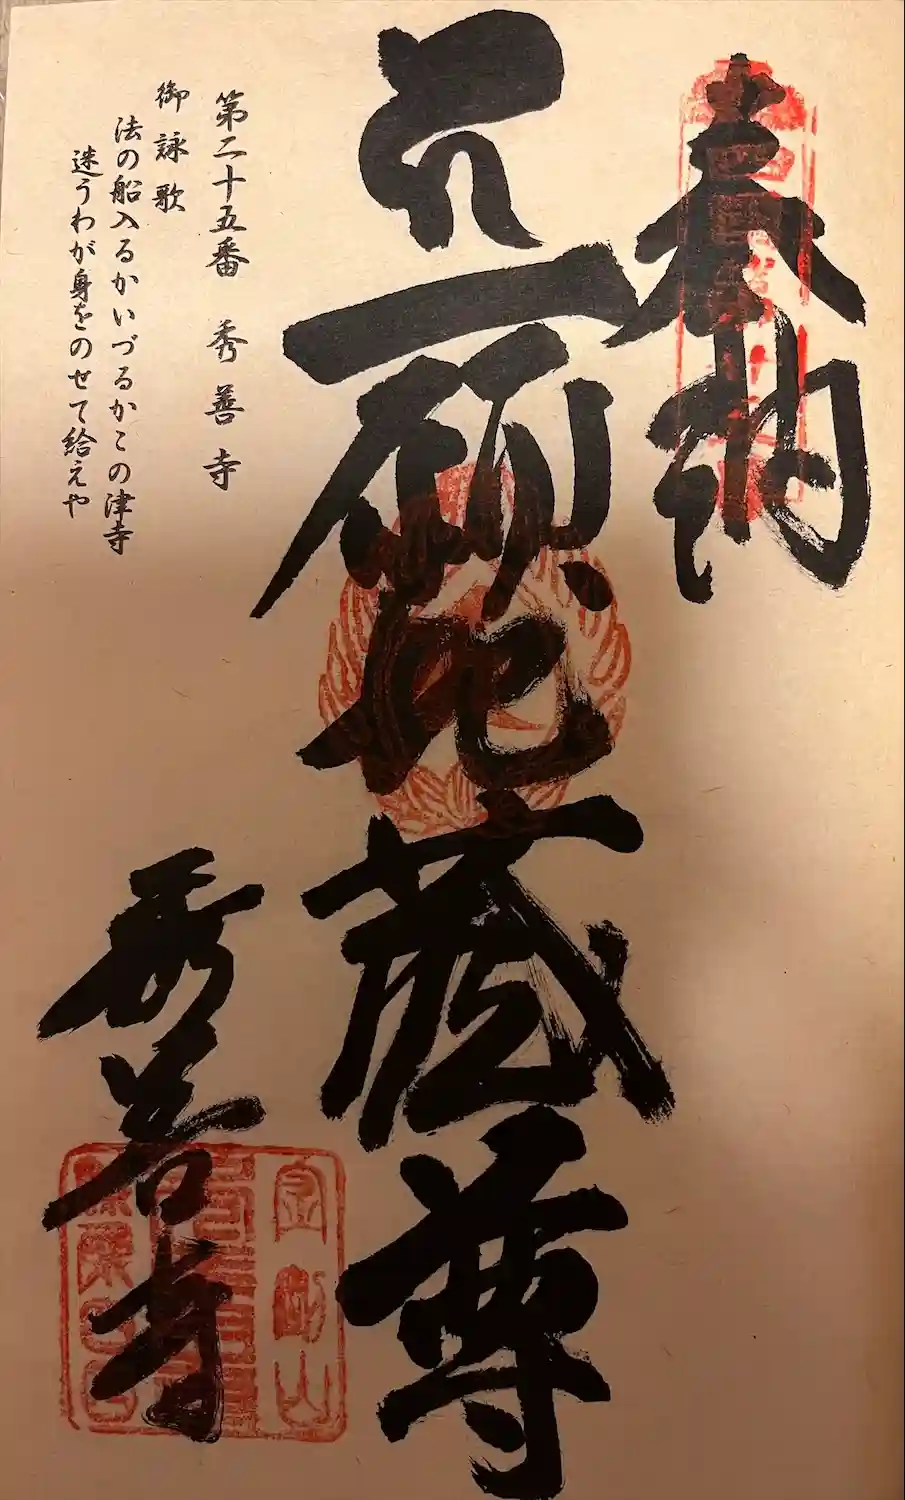 奉納
六願地蔵尊
秀善寺
第二十五番 秀善寺
御詠歌
法の船入るかいづるかこの津寺
迷うわが身をのせて給えや
金剛山